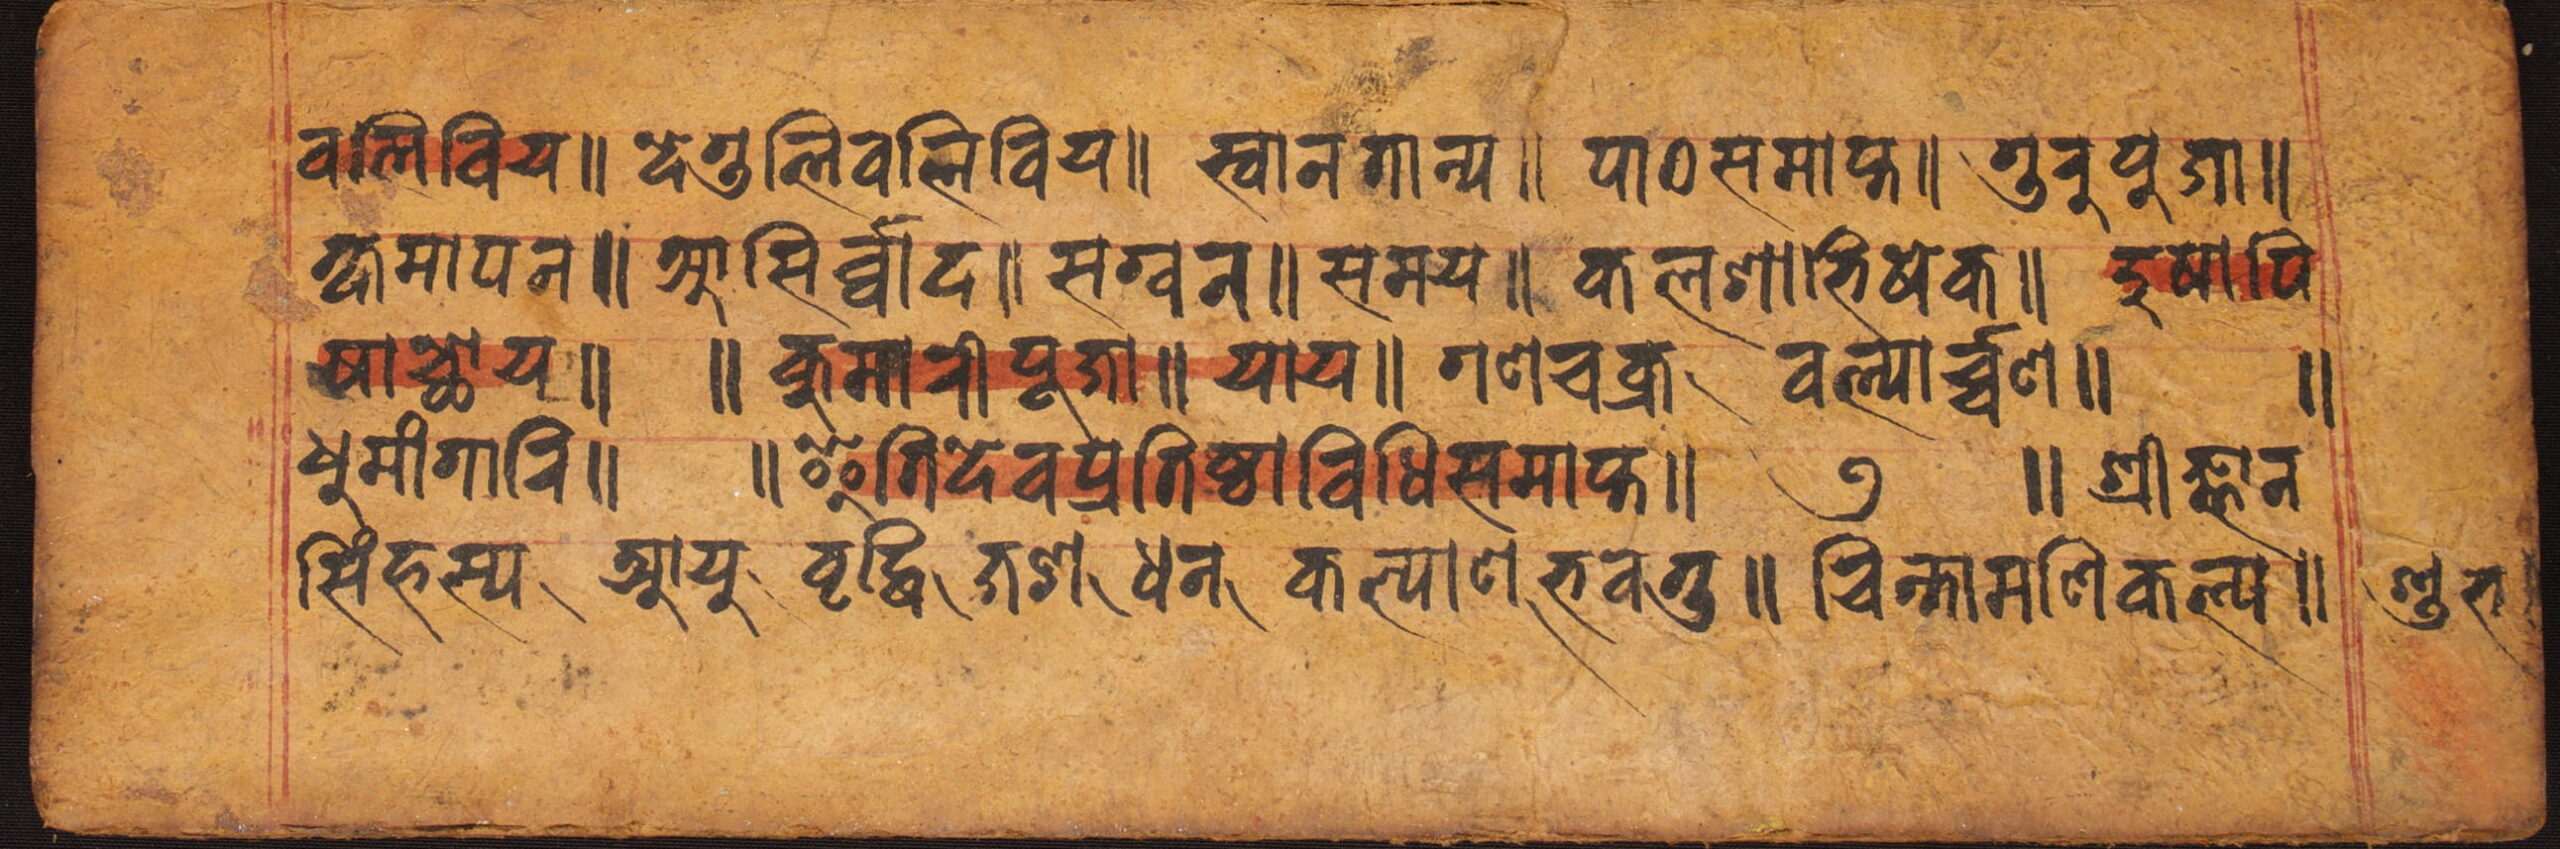 वलिविय॥ देगुलिवलिविय॥ स्वानतान्य॥ पाठसमाप्त॥ गुरुपूजा॥
क्षमापन॥ आसिर्व्वाद॥ सग्वन॥ समय॥ कलशाभिषेक॥ दुषापि
षाच्छोय॥ ॥ कुमारीपूजा॥ याय॥ गणचक्र वल्यार्च्चण॥ ॥
धुमांगारि॥ ॥ इतिदेवप्रतिष्ठाविधिसमाप्त॥ ॥ श्रीज्ञान
सिंहस्य आयु वृद्धि जश धन कल्याण भवतु॥ चिन्तामणिकल्प॥ शुभ